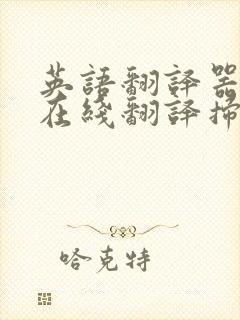 英語翻譯器
在綫翻譯掃
哈克特